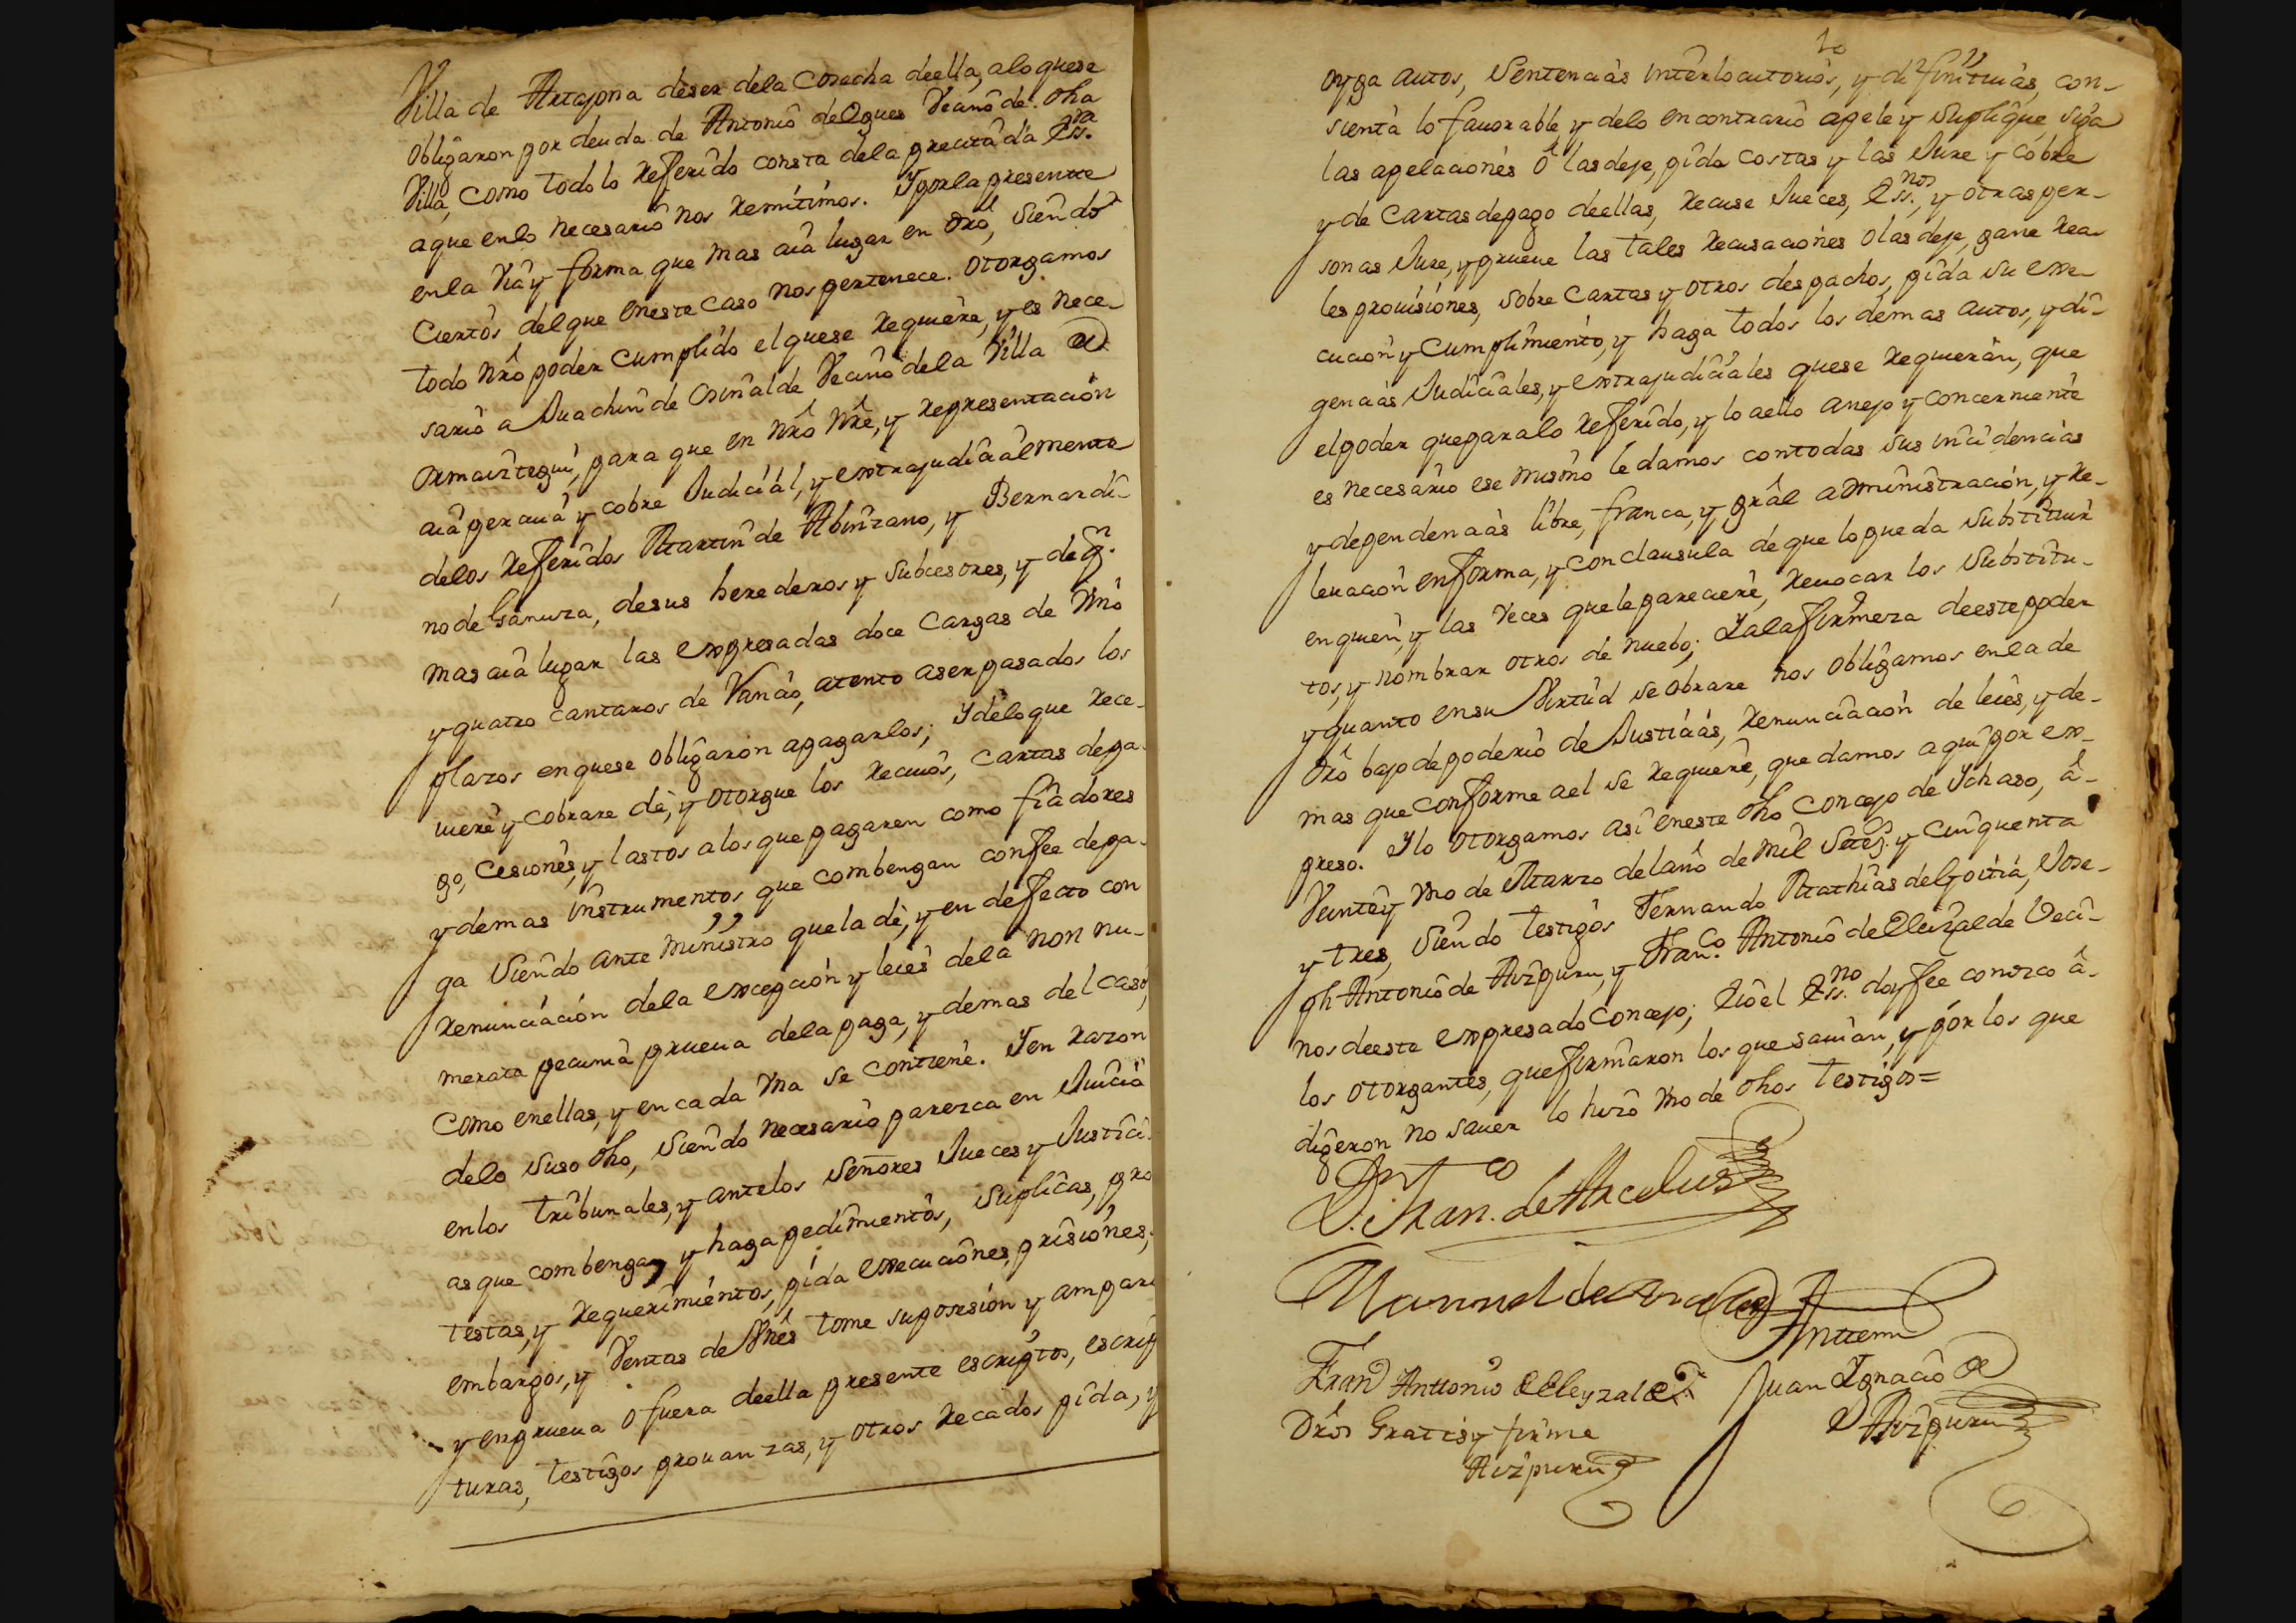 Villa de Artajona deser dela Cosecha deella, alo quese
obligaron por deuda de Antonio delques Vecino de dha
Villa, como todo lo Referido consta dela precitada Ess.ra
aque enlo necesario nos Remitimos. Y por la presente
enla via y forma que mas aia lugar en dro, siendo
Ciertos del que eneste Caso nos pertenece. Otorgamos
todo nro poder Cumplido el quese Requiere, y es nece-
sario a Juachin de Osinalde Vecino dela Villa de
Ormaiztegui, para que en nro nre, y Representacion
aia perciua y cobre Judicial, y extrajudicialmente
delos Referidos Martin de Abinzano, y Bernardi-
no de Ganuza, desus herederos y subcesores, y de q.n
mas aia lugar las expresadas doce Cargas de Vino
y quatro Cantaros de Rancio, atento aser pasados los
plazos enquese obligaron apagarlos; Y delo que Rece-
uiere y Cobrare dé, y otorgue los Recivos, Cartas depa-
go, Cesiones, y lastos alos que pagaren como fiadores
y demas instrumentos que combengan confee depa-
ga siendo ante ministro que la dé, y en defecto con
Renunciacion dela excepcion y leies dela non nu-
merata pecunia prueua dela paga, y demas del caso,
Como enellas, y en cada Vna se contiene. Y en Razon
delo suso dho, siendo necesario parezca en Juicio
enlos tribunales, y antelos Señores Jueces y Justici-
as que combenga, y haga pedimientos, suplicas, pro
testas, y Requerimientos, pida execuciones, prisiones,
embargos, y Ventas de Vnes tome suposesion y amparo
y enprueua o fuera deella presente escriptos, escrip
turas, testigos prouanzas, y otros Recados pida, y
10
oyga autos, Sentencias interlocutorias, y difinitiuas, con-
sienta lo fauorable, y delo en contrario apele y suplique, siga
las apelaciones ó las deje, pida costas y las Jure y cobre
y de Cartas depago deellas, Recuse Jueces, Ess.nos, y otras per-
sonas Jure, y prueue las tales Recusaciones o las deje, gane Rea-
les prouisiones, sobre Cartas y otros despachos, pida su exe-
cucion y Cumplimiento, y haga todos los demas autos, y di-
gencias Judiciales, y extrajudiciales quese Requieran, que
elpoder que paralo Referido, y lo aello anejo y concerniente
es necesario ese mismo le damos contodas sus incidencias
y dependencias libre, franca, y gral administracion, y Re-
leuacion enforma, y con clausula de que lo pueda substituir
en quien, y las Veces quele pareciere, Reuocar los Substitu-
tos, y nombrar otros de nuebo; Y ala firmeza deeste poder
y quanto ensu Virtud se obrare nos obligamos enla de
dro bajo de poderio de Justicias, Renunciacion de leies, y de-
mas que conforme ael se Requiere, que damos aqui por ex-
preso. Y lo otorgamos asi eneste dho Concejo de Ychaso, â
Veinte y Vno de Marzo del año de mil Seteç.s y Cinquenta
y tres, siendo testigos Fernando Mathias de Goitia, Jose-
ph Antonio de Aizpuru, y Fran.co Antonio de Eleizalde Veci-
nos deeste expresado Concejo; Y io el Ess.no doy fee conozco â
los otorgantes, que firmaron los que sauian, y por los que
digeron no sauer lo hizo Vno de dhos testigos=
D.n Fran.co de Arcelus
Manuel de
Antemi
Fran.co Anttonio de Eleyzalde
Juan Ygnacio de
Aizpuru
Dros Gratis y firme
Aizpuru